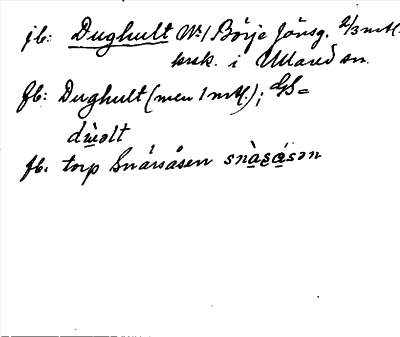 jb: Dughult No 1 Börje Jönsg. 2/3 mtl.
krsk. i Ullared sn.
fb: Dughult (men 1 mtl.); GS=
dẁ̤əlt
fb. torp Snårsåsen snàsåsən